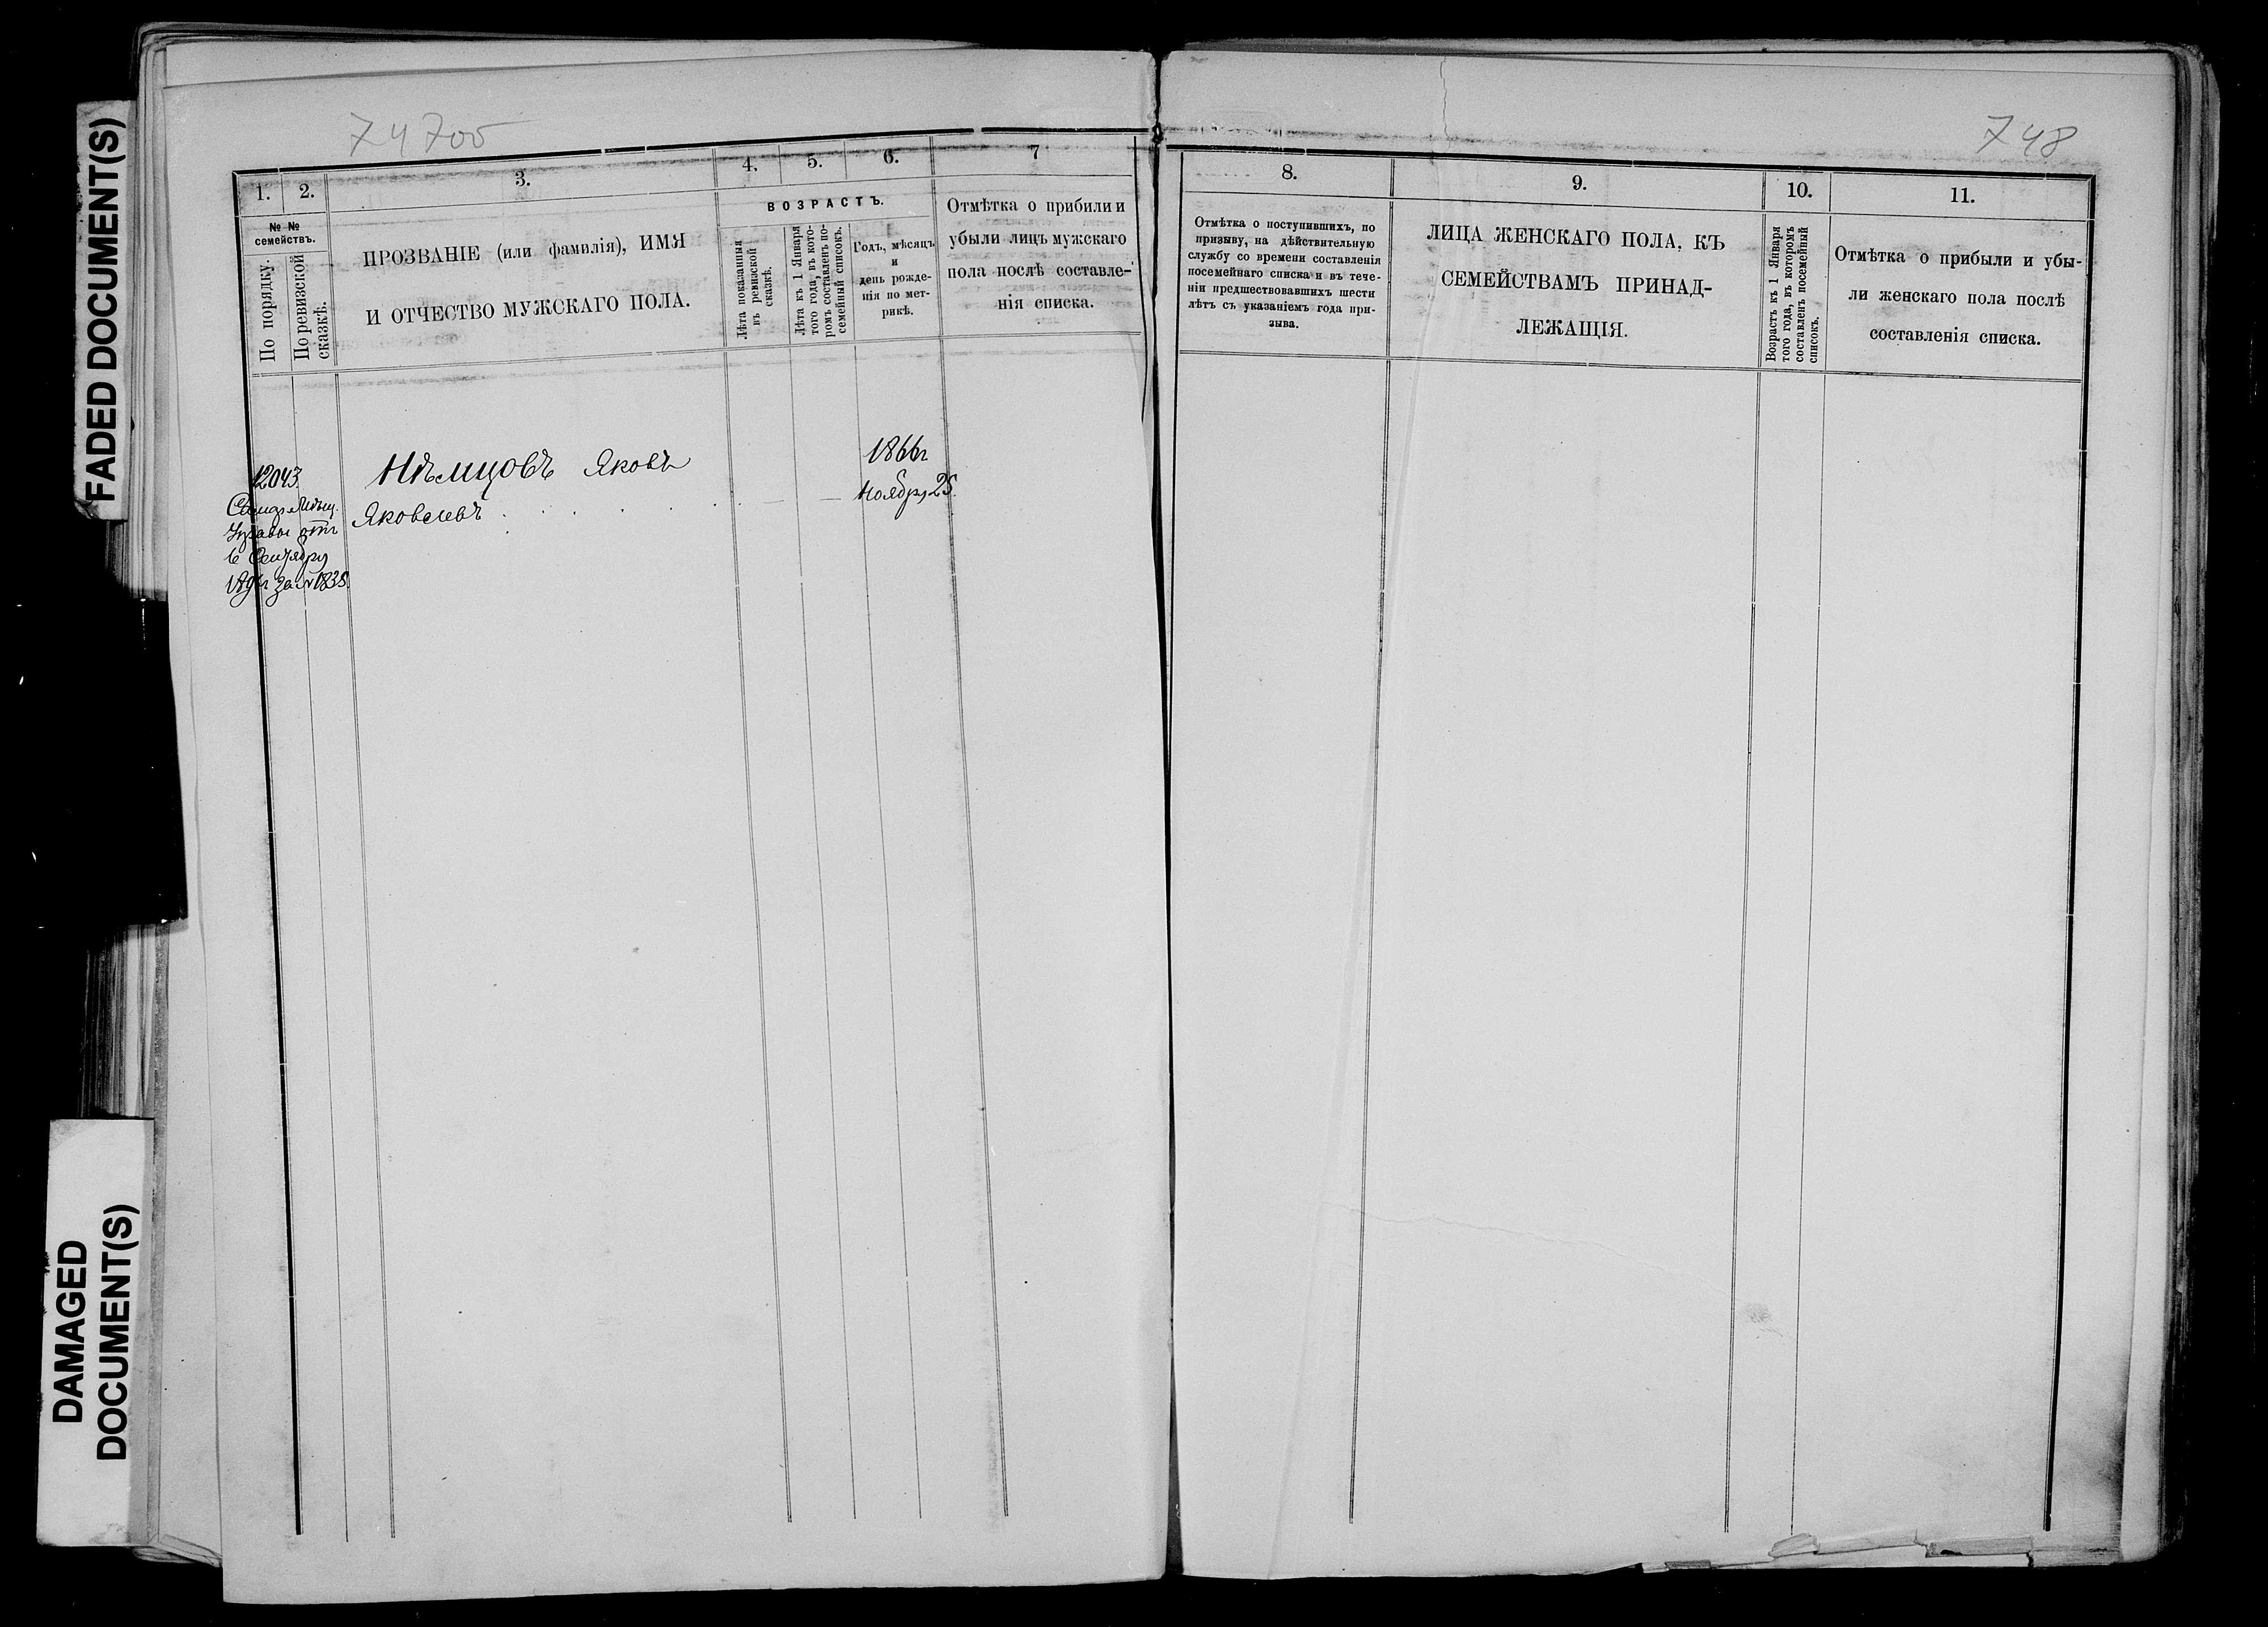 FADED DOCUMENT(S)
DAMAGED
DOCUMENT(S)
74 700
1.
2.
3.
4.
5.
6.
7
№ №
семействъ.
По порядку.
По ревизской
сказкѣ.
ПРОЗВАНІЕ (или фамилія), ИМЯ
И ОТЧЕСТВО МУЖСКАГО ПОЛА.
ВОЗРАСТЪ.
Лѣта показанныя
въ ревизской
сказкѣ.
Лѣта къ 1 Января
того года, въ кото-
ромъ составленъ по-
семейный списокъ.
Годъ, мѣсяцъ
и
день рожде-
нія по мет-
рикѣ.
Отмѣтка о прибыли и
убыли лицъ мужскаго
пола послѣ составле-
нія списка.
12043.
Мѣщ.
Управы отъ
Сентября
за № 1835.
Нѣмцовъ Яковъ
Яковлевъ
1866 г
Ноября 25.
748
8.
9.
10.
11.
Отмѣтка о поступившихъ, по
призыву, на дѣйствительную
службу со времени составленія
посемейнаго списка и въ тече-
ніи предшествовавшихъ шести
лѣтъ съ указаніемъ года при-
зыва.
ЛИЦА ЖЕНСКАГО ПОЛА, КЪ
СЕМЕЙСТВАМЪ ПРИНАД-
ЛЕЖАЩІЯ.
Возрастъ къ 1 Января
того года, въ которомъ
составленъ посемейный
списокъ.
Отмѣтка о прибыли и убы-
ли женскаго пола послѣ
составленія списка.